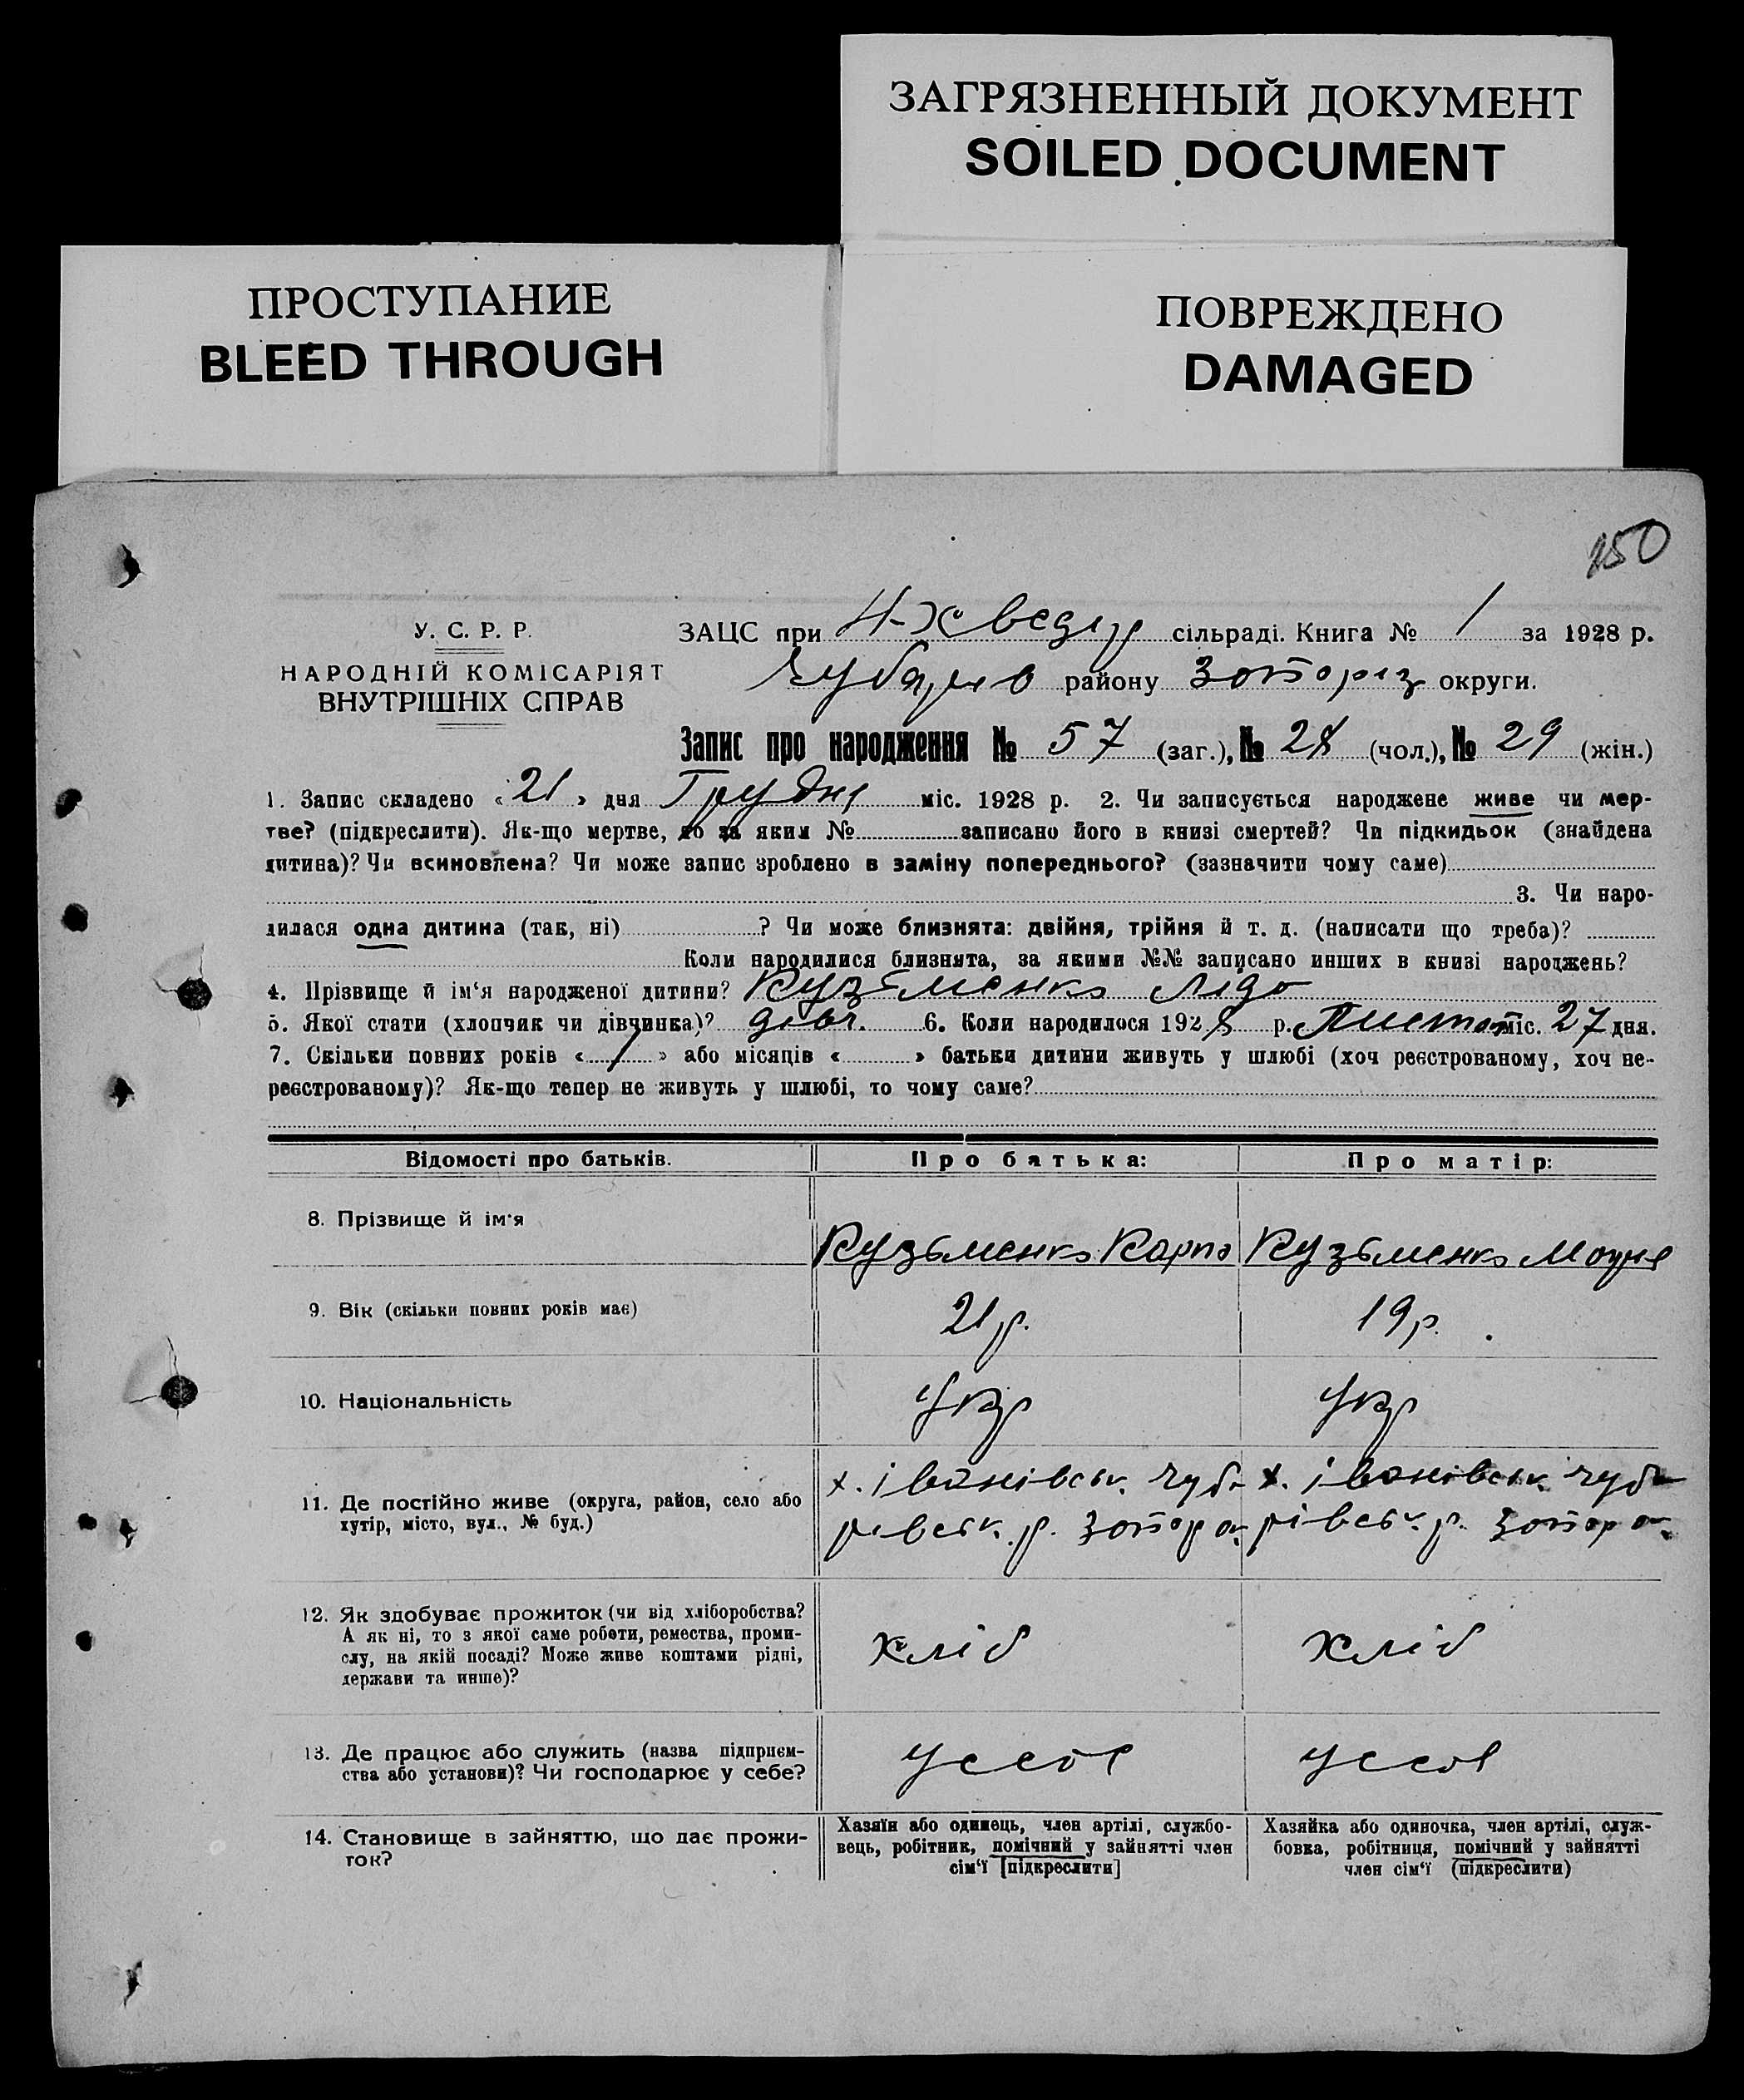 ЗАГРЯЗНЕННЫЙ ДОКУМЕНТ
SOILED DOCUMENT
ПРОСТУПАНИЕ
BLEED THROUGH
ПОВРЕЖДЕНО
DAMAGED
150
У. С. Р. Р.
НАРОДНІЙ КОМІСАРІЯТ
ВНУТРІШНІХ СПРАВ
ЗАЦС при сільраді. Книга № 1 за 1928 р.
Чубарів району Запоріз округи.
Запис про народження № 57 (заг.), № 28 (чол.), № 29 (жін.)
1. Запис складено «21» дня Грудня міс. 1928 р. 2. Чи записується народжене живе чи мер-
тве? (підкреслити). Як-що мертве, то за яким № записано його в книзі смертей? Чи підкидьок (знайдена
дитина)? Чи всиновлена? Чи може запис зроблено в заміну попереднього? (зазначити чому саме)
3. Чи наро-
дилася одна дитина (так, ні) ? Чи може близнята: двійня, трійня й т. д. (написати що треба)?
Коли народилися близнята, за якими №№ записано инших в книзі народжень?
4. Прізвище й ім'я народженої дитини? Кузьменко Ліда
5. Якої стати (хлопчик чи дівчинка)? дівч. 6. Коли народилося 1928 р. Листоп міс. 27 дня.
7. Скільки повних років «1» або місяців « » батьки дитини живуть у шлюбі (хоч реєстрованому, хоч не-
реєстрованому)? Як-що тепер не живуть у шлюбі, то чому саме?
Відомості про батьків. Про батька: Про матір:
8. Прізвище й ім'я Кузьменко Карпо Кузьменко Мотря
9. Вік (скільки повних років має) 21 р. 19 р.
10. Національність Укр Укр
11. Де постійно живе (округа, район, село або
хутір, місто, вул., № буд.)
х. Іванівськ. Чуба х. Іванівськ. Чуба
рівськ. р. Запор ок. рівськ. р. Запор ок.
12. Як здобуває прожиток (чи від хліборобства?
А як ні, то з якої саме роботи, ремества, проми-
слу, на якій посаді? Може живе коштами рідні,
держави та инше)?
хліб хліб
13. Де працює або служить (назва підприєм-
ства або установи)? Чи господарює у себе?
у себе у себе
14. Становище в зайняттю, що дає прожи-
ток?
Хазяїн або одинець, член артілі, службо-
вець, робітник, помічний у зайнятті член
сім'ї [підкреслити]
Хазяйка або одиночка, член артілі, служ-
бовка, робітниця, помічний у зайнятті
член сім'ї (підкреслити)